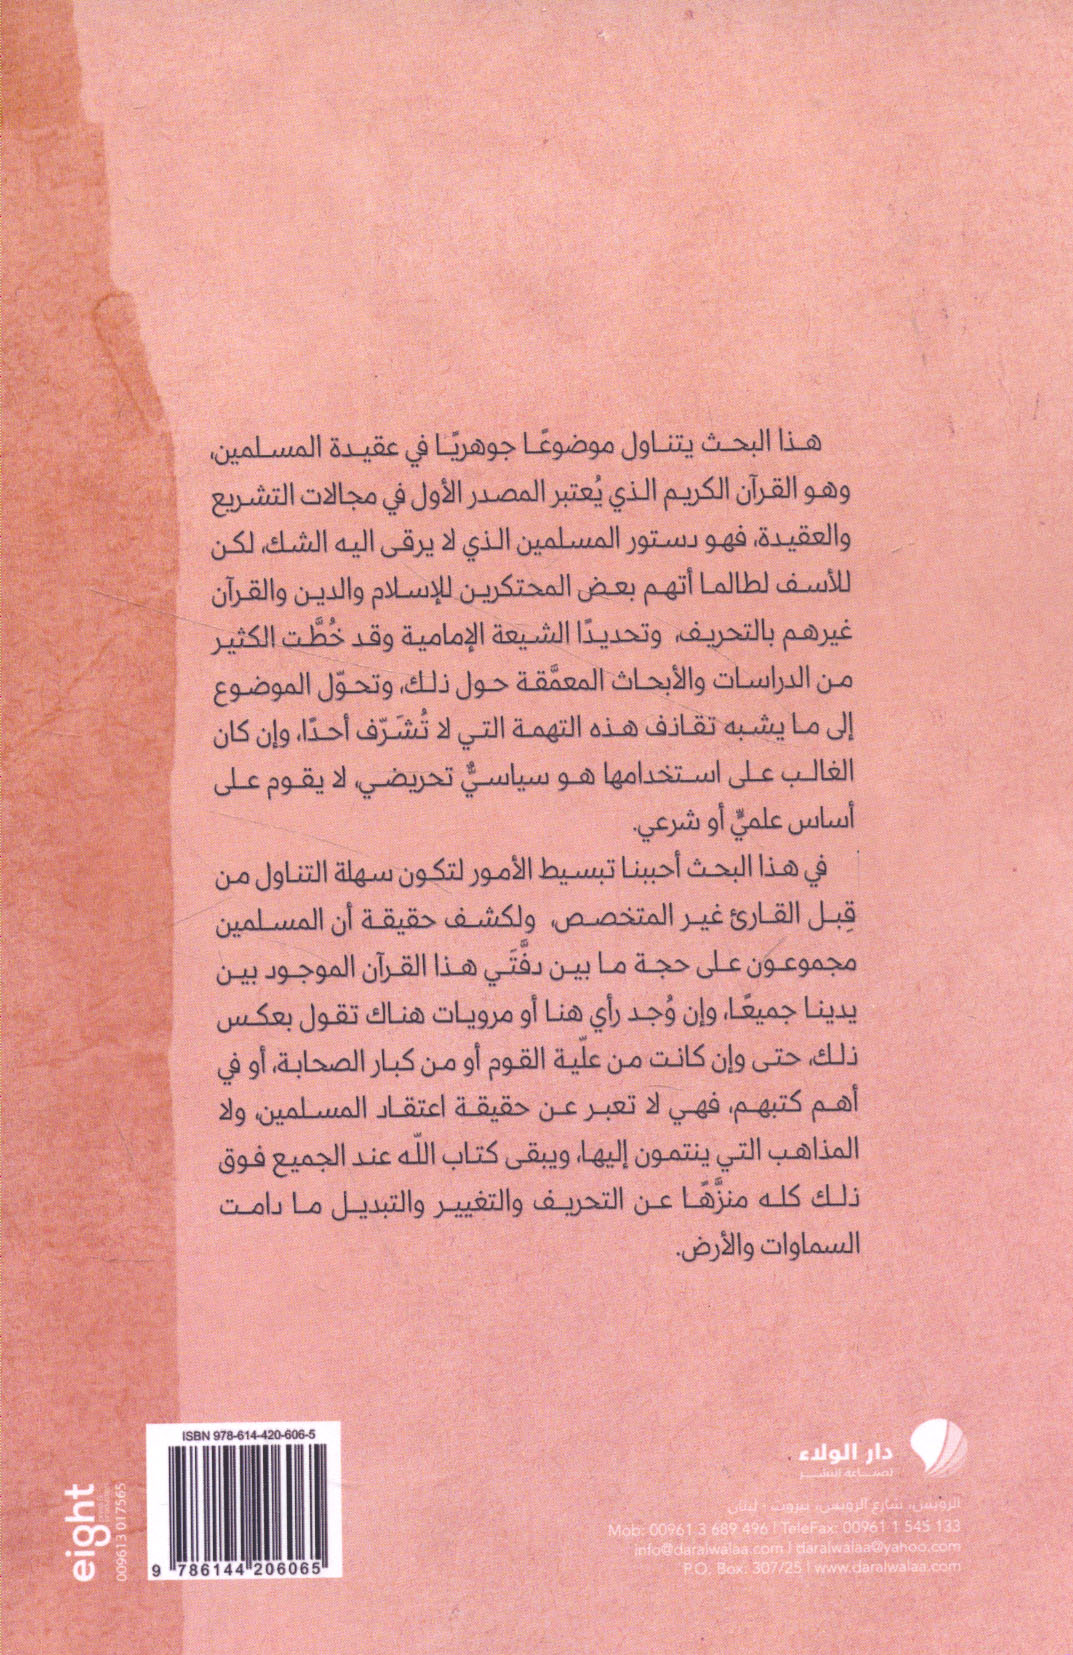 هذا البحث يتناول موضوعًا جوهريًا في عقيدة المسلمين،
وهو القرآن الكريم الذي يُعتبر المصدر الأول في مجالات التشريع
والعقيدة، فهو دستور المسلمين الذي لا يرقى اليه الشك، لكن
للأسف لطالما أتهم بعض المحتكرين للإسلام والدين والقرآن
غيرهم بالتحريف، وتحديدًا الشيعة الإمامية وقد خُطَّت الكثير
من الدراسات والأبحاث المعمَّقة حول ذلك، وتحوّل الموضوع
إلى ما يشبه تقاذف هذه التهمة التي لا تُشَرّف أحدًا، وإن كان
الغالب على استخدامها هو سياسيٌّ تحريضي، لا يقوم على
أساس علميٍّ أو شرعي.
في هذا البحث أحببنا تبسيط الأمور لتكون سهلة التناول من
قِبل القارئ غير المتخصص، ولكشف حقيقة أن المسلمين
مجموعون على حجة ما بين دفَّتَي هذا القرآن الموجود بين
يدينا جميعًا، وإن وُجد رأي هنا أو مرويات هناك تقول بعكس
ذلك، حتى وإن كانت من علّية القوم أو من كبار الصحابة، أو في
أهم كتبهم، فهي لا تعبر عن حقيقة اعتقاد المسلمين، ولا
المذاهب التي ينتمون إليها، ويبقى كتاب اللّه عند الجميع فوق
ذلك كله منزَّهًا عن التحريف والتغيير والتبديل ما دامت
السماوات والأرض.
ISBN 978-614-420-606-5
9 786144 206065
eight
009613 017565
دار الولاء
لصناعة النشر
الرويس، شارع الرويس، بيروت - لبنان
Mob: 00961 3 689 496 | TeleFax: 00961 1 545 133
info@daralwalaa.com | daralwalaa@yahoo.com
P.O. Box: 307/25 | www.daralwalaa.com